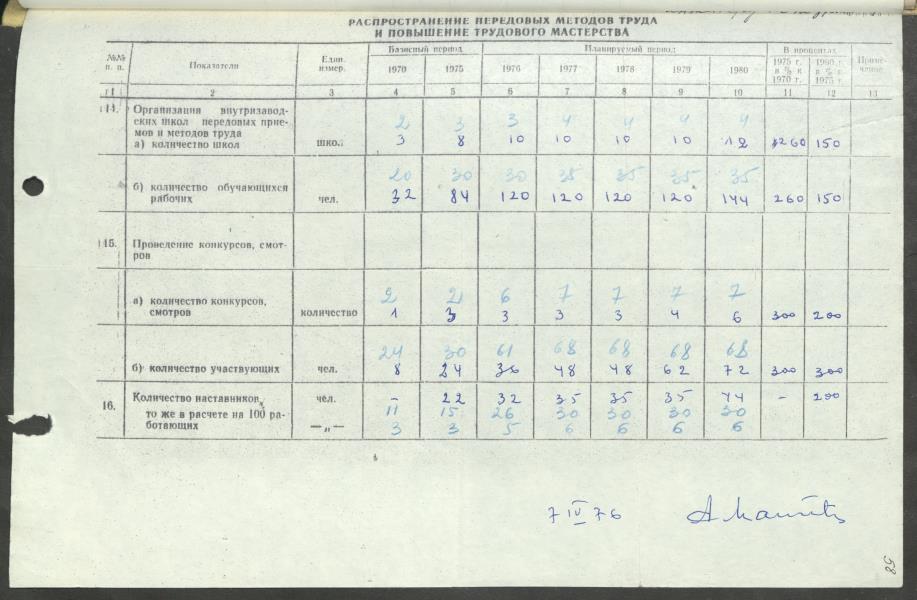 РАСПРОСТРАНЕНИЕ ПЕРЕДОВЫХ МЕТОДОВ ТРУДА
И ПОВЫШЕНИЕ ТРУДОВОГО МАСТЕРСТВА
№№ п. п. Показатели Един. измер. Базисный период Планируемый период В процентах Приме- чание
1970 1975 1976 1977 1978 1979 1980 1975 г. в % к 1970 г. 1980 г. в % к 1975 г.
1 2 3 4 5 6 7 8 9 10 11 12 13
14. Организация внутризавод-
ских школ передовых прие- 2 3 3 4 4 4 4
мов и методов труда
а) количество школ школ 3 8 10 10 10 10 12 260 150
20 30 30 35 35 35 35
б) количество обучающихся
рабочих чел. 32 84 120 120 120 120 144 260 150
15. Проведение конкурсов, смот-
ров
2 2 6 7 7 7 7
а) количество конкурсов,
смотров количество 1 3 3 3 3 4 6 300 200
24 30 61 68 68 68 68
б) количество участвующих чел. 8 24 36 48 48 62 72 300 300
16. Количество наставников, чел. - 22 32 35 35 35 44 - 200
то же в расчете на 100 ра- 11 15 26 30 30 30 30
ботающих —„— 3 3 5 6 6 6 6
7 IV 76
58